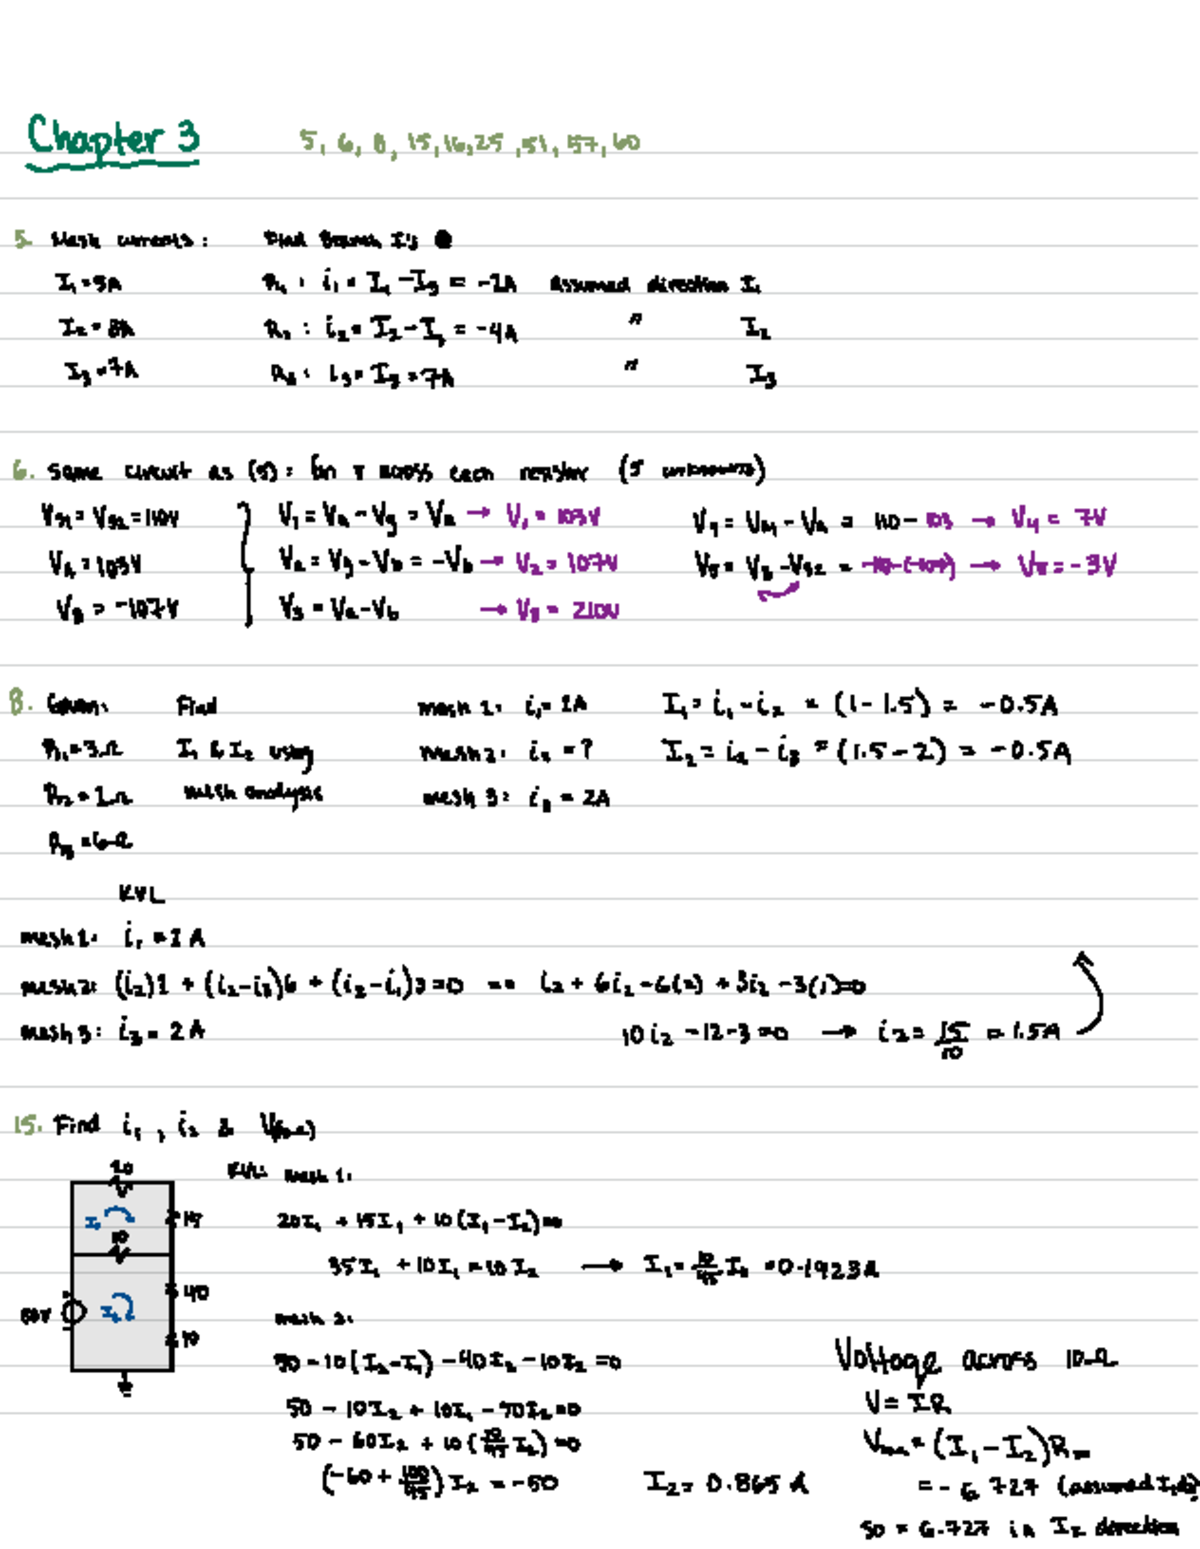 Chapter 3 5, 6, 8, 15, 16, 25, 51, 57, 60
5. Mesh currents: Find Branch I's
I₁ = 5A R₁: i₁ = I₁ - I₃ = -2A Assumed direction I₁
I₂ = 3A R₂: i₂ = I₂ - I₃ = -4A " I₂
I₃ = 7A R₃: i₃ = I₃ = 7A " I₃
6. Same circuit as (5): across each resistor (5 unknowns)
Vs1 = Vs2 = 110V V₁ = Va - Vg = Va → V₁ = 103V V₄ = - Va = 110 - 103 → V₄ = 7V
Va = 103V V₂ = Vg - Vb = -Vb → V₂ = 107V V₅ = - Vs2 = → V₅ = -3V
VB = -107V V₃ = Va - Vb → V₃ = 210V
8. Given: Find mesh 1: i₁ = 1A I₁ = i₁ - i₂ = (1 - 1.5) = -0.5A
R₁ = 3Ω I₁ & I₂ using mesh 2: i₂ = ? I₂ = i₂ - i₃ = (1.5 - 2) = -0.5A
R₂ = 1Ω mesh analysis mesh 3: i₃ = 2A
R₃ = 6Ω
KVL
mesh 1: i₁ = 1A
mesh 2: (i₂)1 + (i₂-i₃)6 + (i₂-i₁)3 = 0 → i₂ + 6i₂ - 6(2) + 3i₂ - 3(1) = 0
mesh 3: i₃ = 2A 10i₂ - 12 - 3 = 0 → i₂ = 15/10 = 1.5A
15. Find i₁, i₂ &
20
KVL: mesh 1:
I₁ 15 20I₁ + 15I₁ + 10(I₁ - I₂) = 0
10
35I₁ + 10I₁ = 10I₂ → I₁ = 10/45 I₂ = 0.1923A
50V I₂ 40
mesh 2:
10 50 - 10(I₂-I₁) - 40I₂ - 10I₂ = 0 Voltage across 10Ω
50 - 10I₂ + 10I₁ - 50I₂ = 0 V = IR
50 - 60I₂ + 10(10/45 I₂) = 0 = (I₁ - I₂)R
(-60 + 100/45)I₂ = -50 I₂ = 0.865 A = -6.727 (assumed
so = 6.727 in I₂ direction